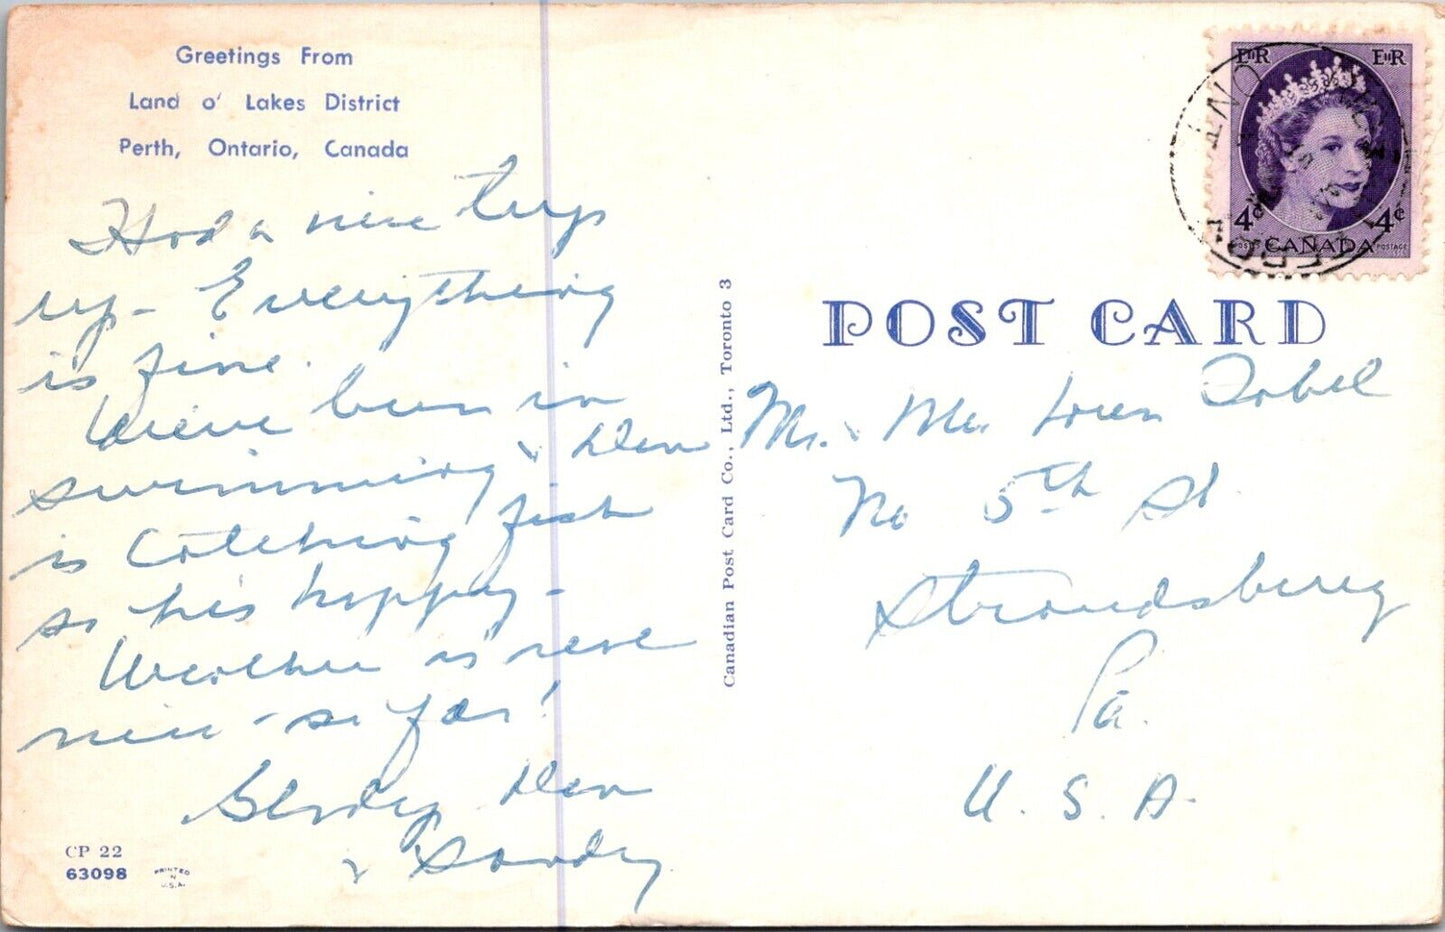 Greetings From
Land o' Lakes District
Perth, Ontario, Canada
Had a nice trip
up - Everything
is fine.
We've been in
swimming & Den
is catching fish
so he's happy -
Weather is real
nice - so far!
Den
& Sandy
CP 22
63098
PRINTED
IN
U.S.A.
Canadian Post Card Co., Ltd., Toronto 3
EIIR EIIR
4¢ 4¢
POSTES CANADA POSTAGE
ONT
POST CARD
Mr. & Mrs. Loren
No 5th St.
Stroudsburg
Pa.
U. S. A.